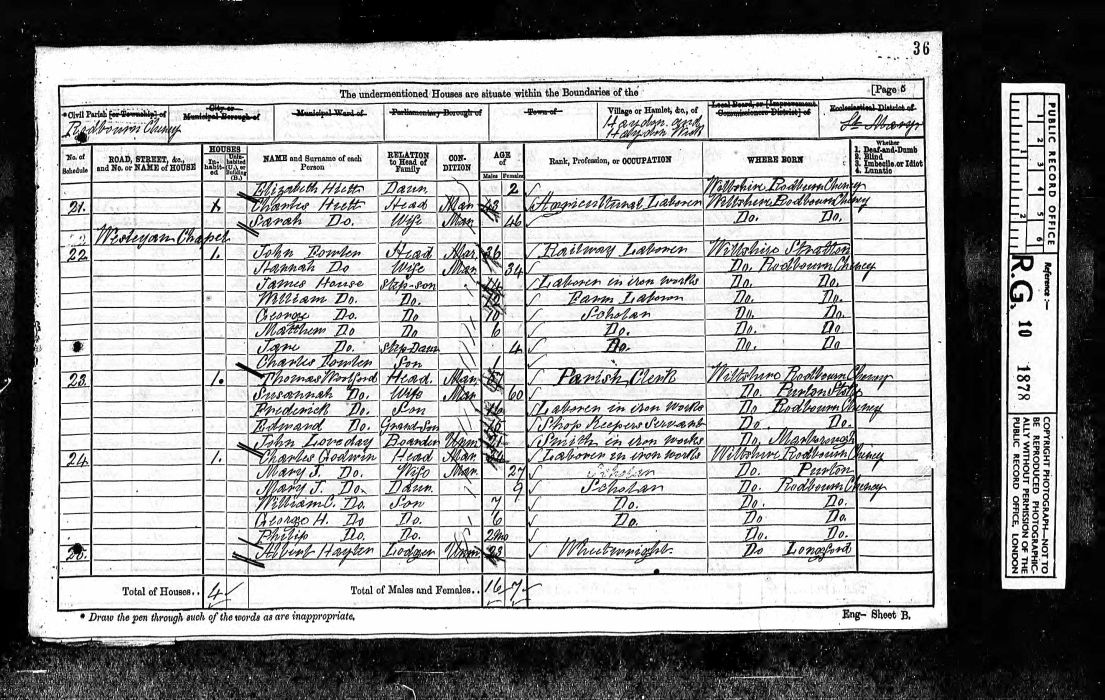 36
The undermentioned Houses are situate within the Boundaries of the
[Page 5
*Civil Parish [or Township] of
Rodbourn Cheney
City or Municipal Borough of
Municipal Ward of
Parliamentary Borough of
Town of
Village or Hamlet, &c., of
Haydon and Haydon Wick
Local Board, or [Improvement Commissioners District] of
Ecclesiastical District of
St Mary
No. of Schedule
ROAD, STREET, &c., and No. or NAME of HOUSE
HOUSES
In-habited
Unin-habited (U.), or Building (B.)
NAME and Surname of each Person
RELATION to Head of Family
CON-DITION
AGE of
Males
Females
Rank, Profession, or OCCUPATION
WHERE BORN
Whether
1. Deaf-and-Dumb
2. Blind
3. Imbecile or Idiot
4. Lunatic
Elizabeth Hiett Daur. 2 Wiltshire Rodbourn Cheney
21. Charles Hiett Head Mar 43 Agricultural Laborer Wiltshire Rodbourn Cheney
Sarah Do. Wife Mar 46 Do. Do.
Wesleyan Chapel
22 1. John Head Mar 26 Railway Laborer Wiltshire Stratton
Hannah Do Wife Mar 34 Do. Rodbourn Cheney
James House Step-son 14 Laborer in iron works Do. Do.
William Do. Do. Farm Laborer Do. Do.
George Do. Do 10 Scholar Do. Do.
Matthew Do Do 6 Do. Do. Do
Jane Do. Step Daur 4 Do. Do. Do
Charles Son
23. 1. Thomas Woolford Head. Mar Parish Clerk Wiltshire Rodbourn Cheney
Susannah Do. Wife Mar 60 Do. Purton Stoke
Frederick Do. Son 16 Laborer in iron works Do Rodbourn Cheney
Edward Do. Grand-Son Shop Keepers Servant Do. Do.
John Loveday Boarder Unm 21 Smith in iron works Do. Marlborough
24. 1. Charles Godwin Head Mar Laborer in iron works Wiltshire Rodbourn Cheney
Mary J. Do. Wife Mar 27 Do. Purton
Mary J. Do. Daur. 9 Scholar Do. Rodbourn Cheney
William C. Do. Son 7 Do. Do. Do.
George H. Do Do. 6 Do. Do Do.
Philip Do. Do. 2mo Do. Do.
Albert Lodger Unm 23 Wheelwright Do Longford
Total of Houses.. 4
Total of Males and Females.. 16 7
* Draw the pen through such of the words as are inappropriate.
Eng— Sheet B.
PUBLIC RECORD OFFICE
1 2 3 4 5 6
1 2
Reference :—
R.G. 10 1878
COPYRIGHT PHOTOGRAPH—NOT TO BE REPRODUCED PHOTOGRAPHICALLY WITHOUT PERMISSION OF THE PUBLIC RECORD OFFICE, LONDON